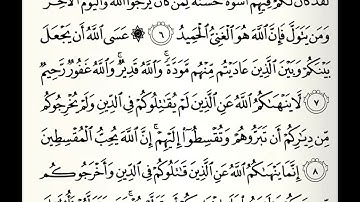 لَقَدْ كَانَ لَكُمْ فِيهِمْ أُسْوَةٌ حَسَنَةٌ لِّمَن كَانَ يَرْجُوا۟ ٱللَّهَ وَٱلْيَوْمَ ٱلْءَاخِرَ
وَمَن يَتَوَلَّ فَإِنَّ ٱللَّهَ هُوَ ٱلْغَنِىُّ ٱلْحَمِيدُ ٦ عَسَى ٱللَّهُ أَن يَجْعَلَ
بَيْنَكُمْ وَبَيْنَ ٱلَّذِينَ عَادَيْتُم مِّنْهُم مَّوَدَّةً ۚ وَٱللَّهُ قَدِيرٌ ۚ وَٱللَّهُ غَفُورٌ رَّحِيمٌ
٧ لَّا يَنْهَىٰكُمُ ٱللَّهُ عَنِ ٱلَّذِينَ لَمْ يُقَٰتِلُوكُمْ فِى ٱلدِّينِ وَلَمْ يُخْرِجُوكُم
مِّن دِيَٰرِكُمْ أَن تَبَرُّوهُمْ وَتُقْسِطُوٓا۟ إِلَيْهِمْ ۚ إِنَّ ٱللَّهَ يُحِبُّ ٱلْمُقْسِطِينَ
٨ إِنَّمَا يَنْهَىٰكُمُ ٱللَّهُ عَنِ ٱلَّذِينَ قَٰتَلُوكُمْ فِى ٱلدِّينِ وَأَخْرَجُوكُم